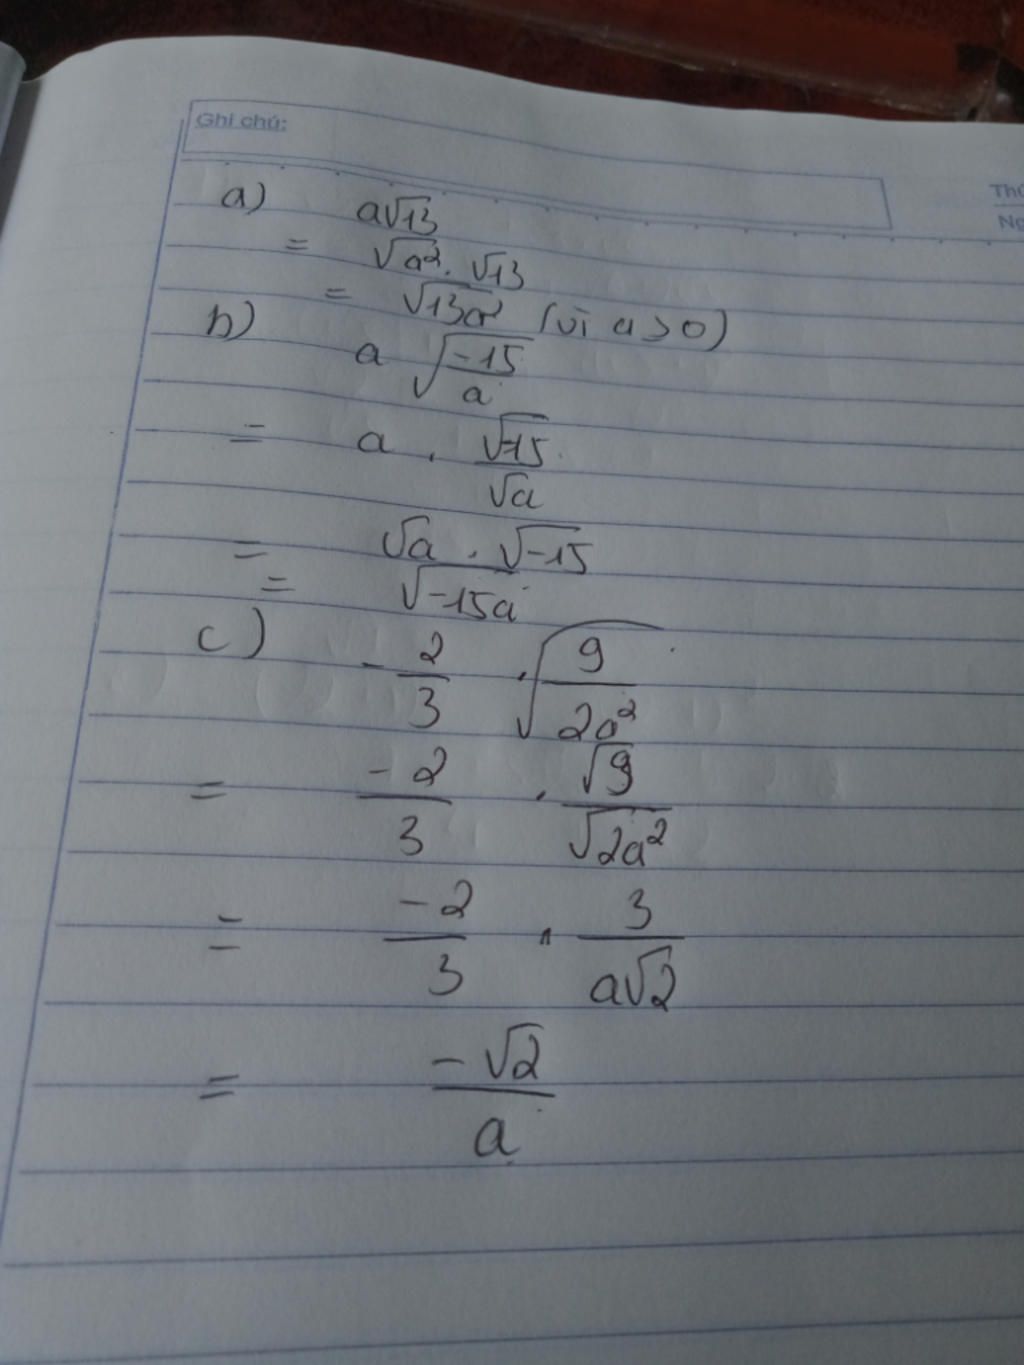 Ghi chú:
Thứ
Ng
a) a√13
= √a² . √13
= √13a² (vì a > 0)
b) a √(-15/a)
= a . √-15/√a
= √a . √-15
= √-15a
c) -2/3 . √(9/2a²)
= -2/3 . √9/√2a²
= -2/3 . 3/a√2
= -√2/a